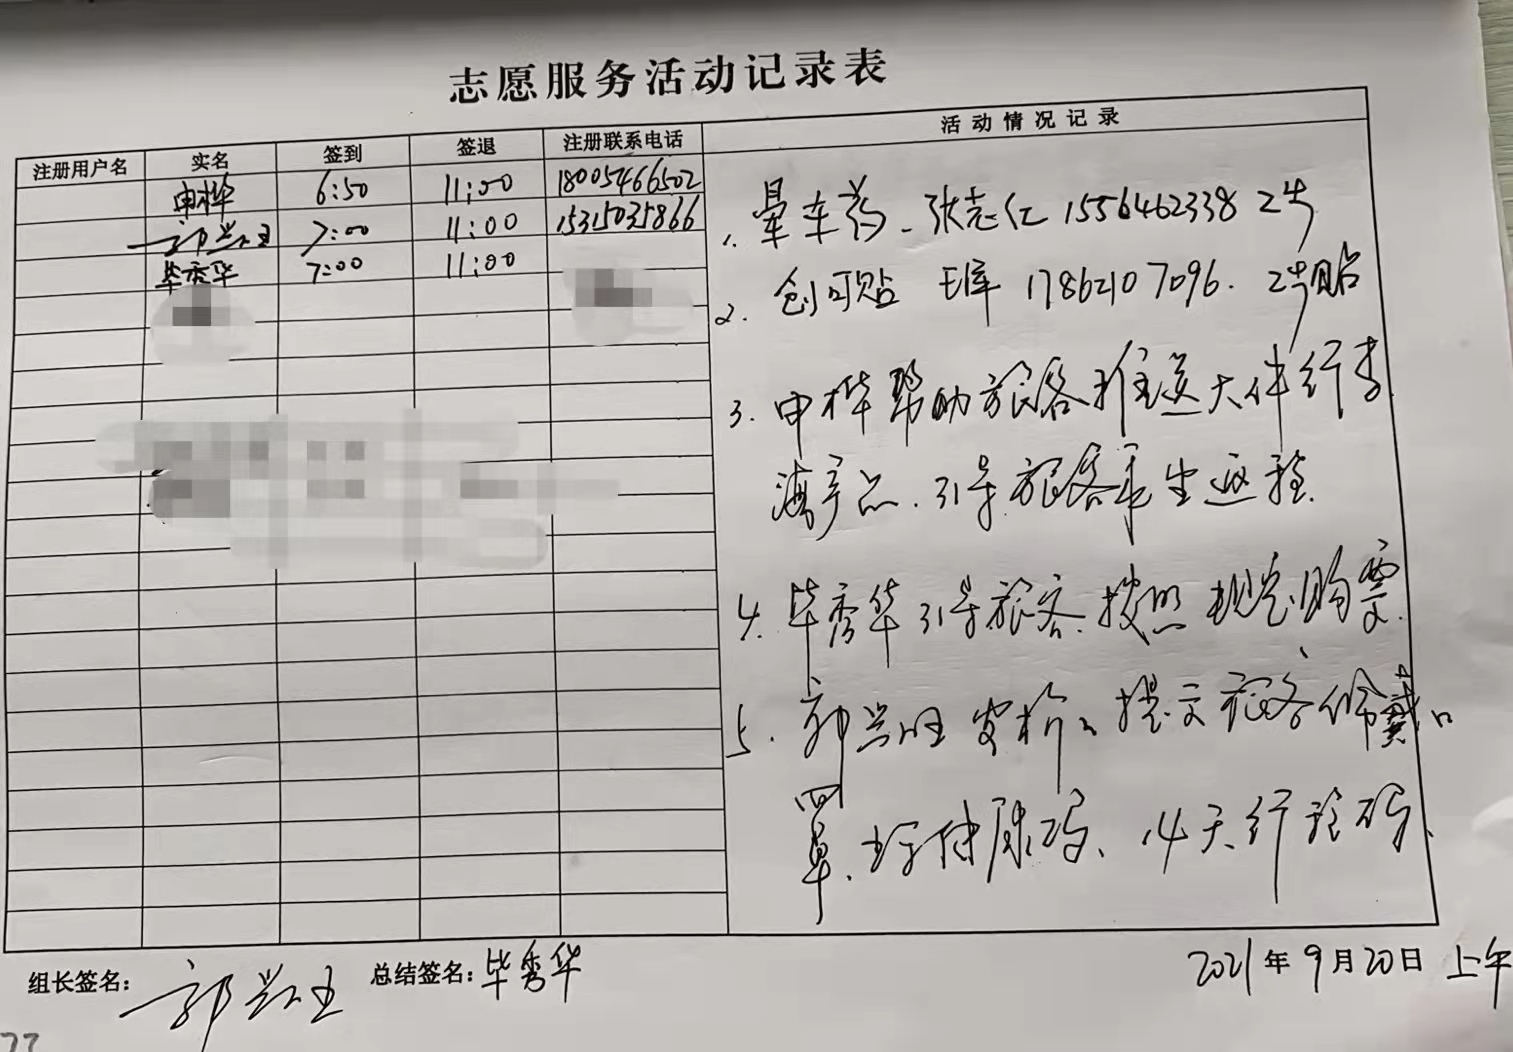 志愿服务活动记录表
注册用户名 实名 签到 签退 注册联系电话 活动情况记录
申桦 6:50 11:00 18005466502
郭兴旺 7:00 11:00 15315035866
毕秀华 7:00 11:00
1. 晕车药、张志仁 1556462338 2片
2. 创可贴 王库 17862107096. 2片贴
3. 申桦帮助旅客推送大件行李
海产品.引导旅客乘坐返程.
4. 毕秀华引导旅客.按照规定购票.
5. 郭兴旺安检、提示旅客佩戴口
罩.出示健康码、14天行程码、
组长签名: 郭兴旺 总结签名: 毕秀华 2021年9月20日 上午
77